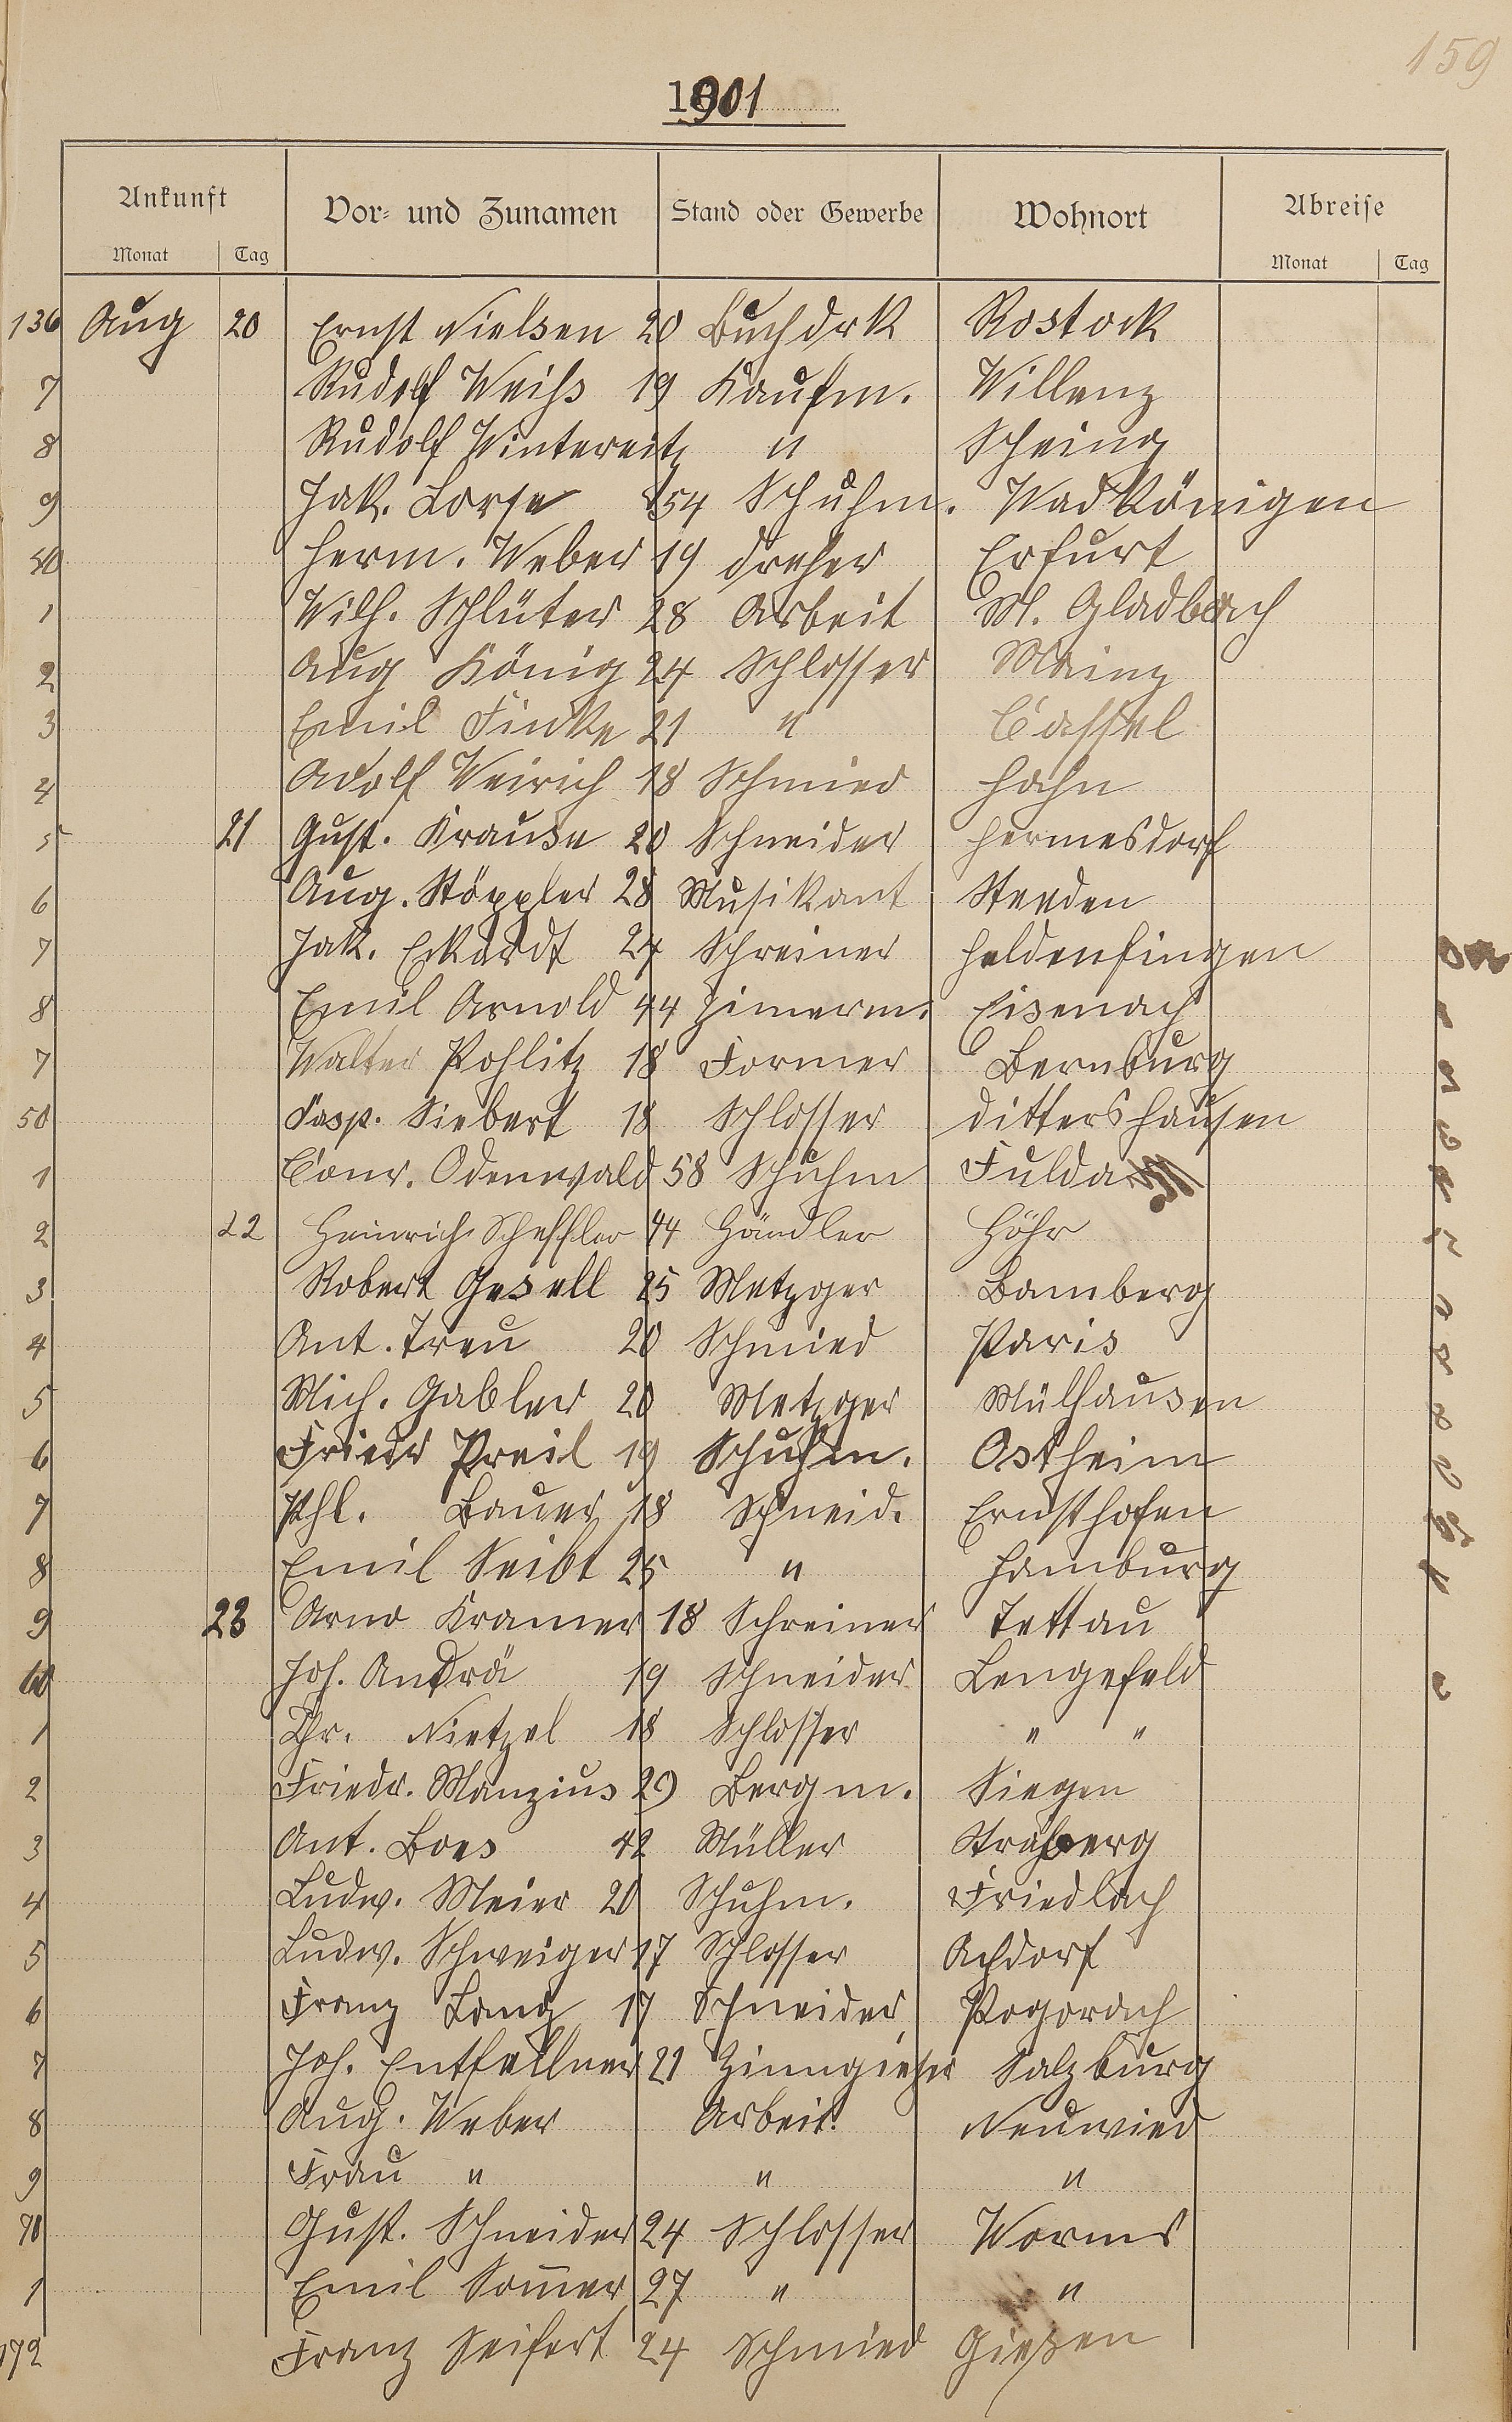 159
1901
Ankunft Vor- und Zunamen Stand oder Gewerbe Wohnort Abreise
Monat Tag Monat Tag
136 Aug 20 Ernst Nielsen 20 Buchdrk Rostock
7 Rudolf Weiß 19 Kaufm. Willenz
8 Rudolf Wintereitz "
9 Jak. Lorse 54 Schuhm. Wadkönigen
40 Herm. Weber 19 Dreher Erfurt
1 Wilh. Schlüter 28 Arbeit M. Gladbach
2 Aug König 24 Schlosser Mainz
3 Emil Finke 21 " Cassel
4 Adolf Weirich 18 Schmied Hahn
5 21 Gust. Krause 20 Schneider Hermesdorf
6 Aug. Stöppler 28 Musikant Steeden
7 Jak. Eckardt 24 Schreiner Heldenfingen
8 Emil Arnold 44 Zimerm. Eisenach
7 Walter Pohlitz 18 Former Bernburg
50 Casp. Siebert 18 Schlosser Dittershausen
1 Conr. Odenwald 58 Schuhm Fulda
2 22 Heinrich Scheffler 44 Händler Höhr
3 Robert Gesell 25 Metzger Bamberg
4 Ant. Treu 20 Schmied Paris
5 Mich. Gabler 20 Metzger Mülhausen
6 Friedr Preil 19 Schuhm. Ostheim
7 Phl. Bauer 18 Schneid. Ernsthofen
8 Emil Seibt 25 " Hamburg
9 23 Arno Kramer 18 Schreiner Tettau
60 Joh. Andrä 19 Schneider Lengefeld
1 Chr. Nietzel 18 Schlosser " "
2 Friedr. Manzius 29 Bergm. Siegen
3 Ant. Boes 42 Müller Straßberg
4 Ludw. Meier 20 Schuhm. Friedlach
5 Ludw. Schweiger 17 Schlosser Achdorf
6 Franz Lang 17 Schneider Pogorach
7 Joh. Entfellner 21 Zinngießer Salzburg
8 Aug. Weber Arbeit. Neuwied
9 Frau " " "
70 Gust. Schneider 24 Schlosser Worms
1 Emil Somer 27 " "
172 Franz Seifert 24 Schmied Gießen